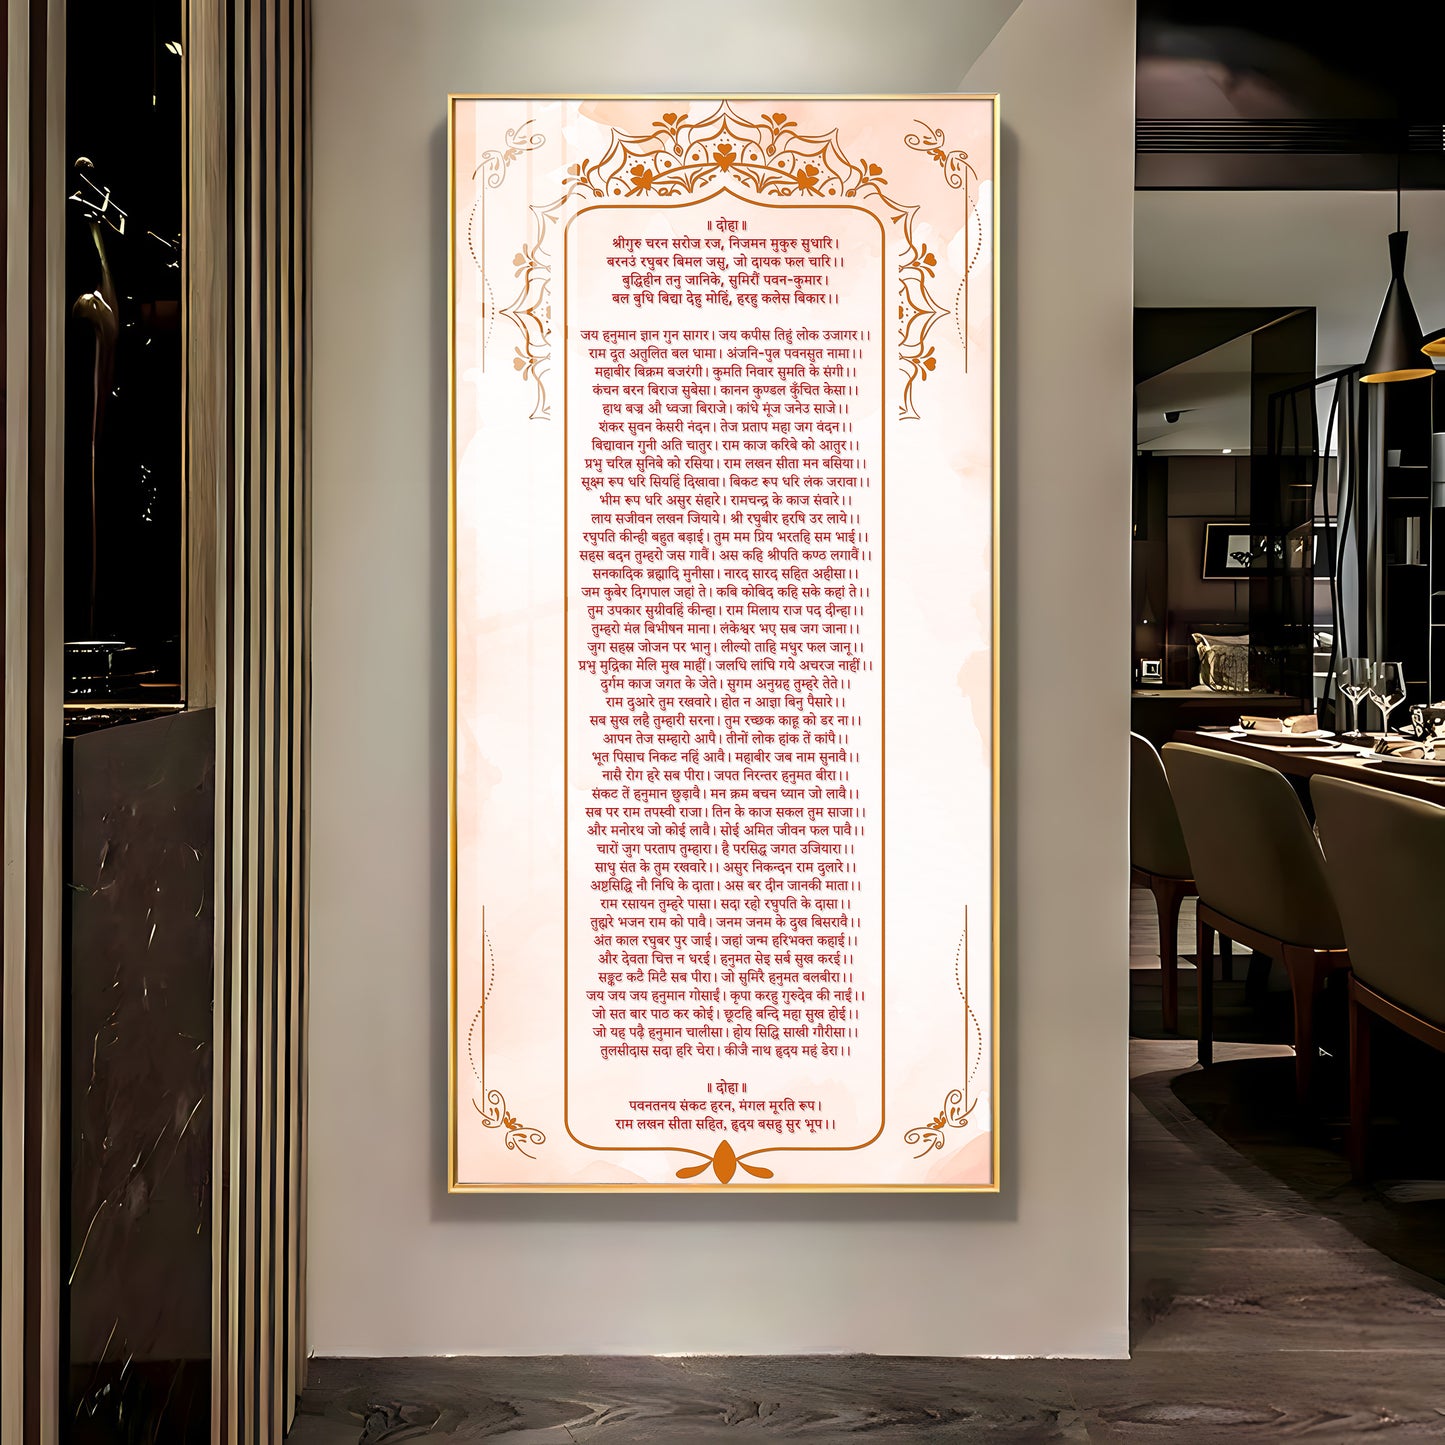 ॥ दोहा ॥
श्रीगुरु चरन सरोज रज, निजमन मुकुरु सुधारि।
बरनउं रघुबर बिमल जसु, जो दायक फल चारि।।
बुद्धिहीन तनु जानिके, सुमिरौं पवन-कुमार।
बल बुधि बिद्या देहु मोहिं, हरहु कलेस बिकार।।
जय हनुमान ज्ञान गुन सागर। जय कपीस तिहुं लोक उजागर।।
राम दूत अतुलित बल धामा। अंजनि-पुत्र पवनसुत नामा।।
महाबीर बिक्रम बजरंगी। कुमति निवार सुमति के संगी।।
कंचन बरन बिराज सुबेसा। कानन कुण्डल कुँचित केसा।।
हाथ बज्र औ ध्वजा बिराजे। कांधे मूंज जनेउ साजे।।
शंकर सुवन केसरी नंदन। तेज प्रताप महा जग वंदन।।
बिद्यावान गुनी अति चातुर। राम काज करिबे को आतुर।।
प्रभु चरित्र सुनिबे को रसिया। राम लखन सीता मन बसिया।।
सूक्ष्म रूप धरि सियहिं दिखावा। बिकट रूप धरि लंक जरावा।।
भीम रूप धरि असुर संहारे। रामचन्द्र के काज संवारे।।
लाय सजीवन लखन जियाये। श्री रघुबीर हरषि उर लाये।।
रघुपति कीन्ही बहुत बड़ाई। तुम मम प्रिय भरतहि सम भाई।।
सहस बदन तुम्हरो जस गावैं। अस कहि श्रीपति कण्ठ लगावैं।।
सनकादिक ब्रह्मादि मुनीसा। नारद सारद सहित अहीसा।।
जम कुबेर दिगपाल जहां ते। कबि कोबिद कहि सके कहां ते।।
तुम उपकार सुग्रीवहिं कीन्हा। राम मिलाय राज पद दीन्हा।।
तुम्हरो मंत्र बिभीषन माना। लंकेश्वर भए सब जग जाना।।
जुग सहस्र जोजन पर भानु। लील्यो ताहि मधुर फल जानू।।
प्रभु मुद्रिका मेलि मुख माहीं। जलधि लांघि गये अचरज नाहीं।।
दुर्गम काज जगत के जेते। सुगम अनुग्रह तुम्हरे तेते।।
राम दुआरे तुम रखवारे। होत न आज्ञा बिनु पैसारे।।
सब सुख लहै तुम्हारी सरना। तुम रच्छक काहू को डर ना।।
आपन तेज सम्हारो आपै। तीनों लोक हांक तें कांपै।।
भूत पिसाच निकट नहिं आवै। महाबीर जब नाम सुनावै।।
नासै रोग हरे सब पीरा। जपत निरन्तर हनुमत बीरा।।
संकट तें हनुमान छुड़ावै। मन क्रम बचन ध्यान जो लावै।।
सब पर राम तपस्वी राजा। तिन के काज सकल तुम साजा।।
और मनोरथ जो कोई लावै। सोई अमित जीवन फल पावै।।
चारों जुग परताप तुम्हारा। है परसिद्ध जगत उजियारा।।
साधु संत के तुम रखवारे।। असुर निकन्दन राम दुलारे।।
अष्टसिद्धि नौ निधि के दाता। अस बर दीन जानकी माता।।
राम रसायन तुम्हरे पासा। सदा रहो रघुपति के दासा।।
तुह्मरे भजन राम को पावै। जनम जनम के दुख बिसरावै।।
अंत काल रघुबर पुर जाई। जहां जन्म हरिभक्त कहाई।।
और देवता चित्त न धरई। हनुमत सेइ सर्ब सुख करई।।
सङ्कट कटै मिटै सब पीरा। जो सुमिरै हनुमत बलबीरा।।
जय जय जय हनुमान गोसाईं। कृपा करहु गुरुदेव की नाईं।।
जो सत बार पाठ कर कोई। छूटहि बन्दि महा सुख होई।।
जो यह पढ़ै हनुमान चालीसा। होय सिद्धि साखी गौरीसा।।
तुलसीदास सदा हरि चेरा। कीजै नाथ हृदय महं डेरा।।
॥ दोहा ॥
पवनतनय संकट हरन, मंगल मूरति रूप।
राम लखन सीता सहित, हृदय बसहु सुर भूप।।